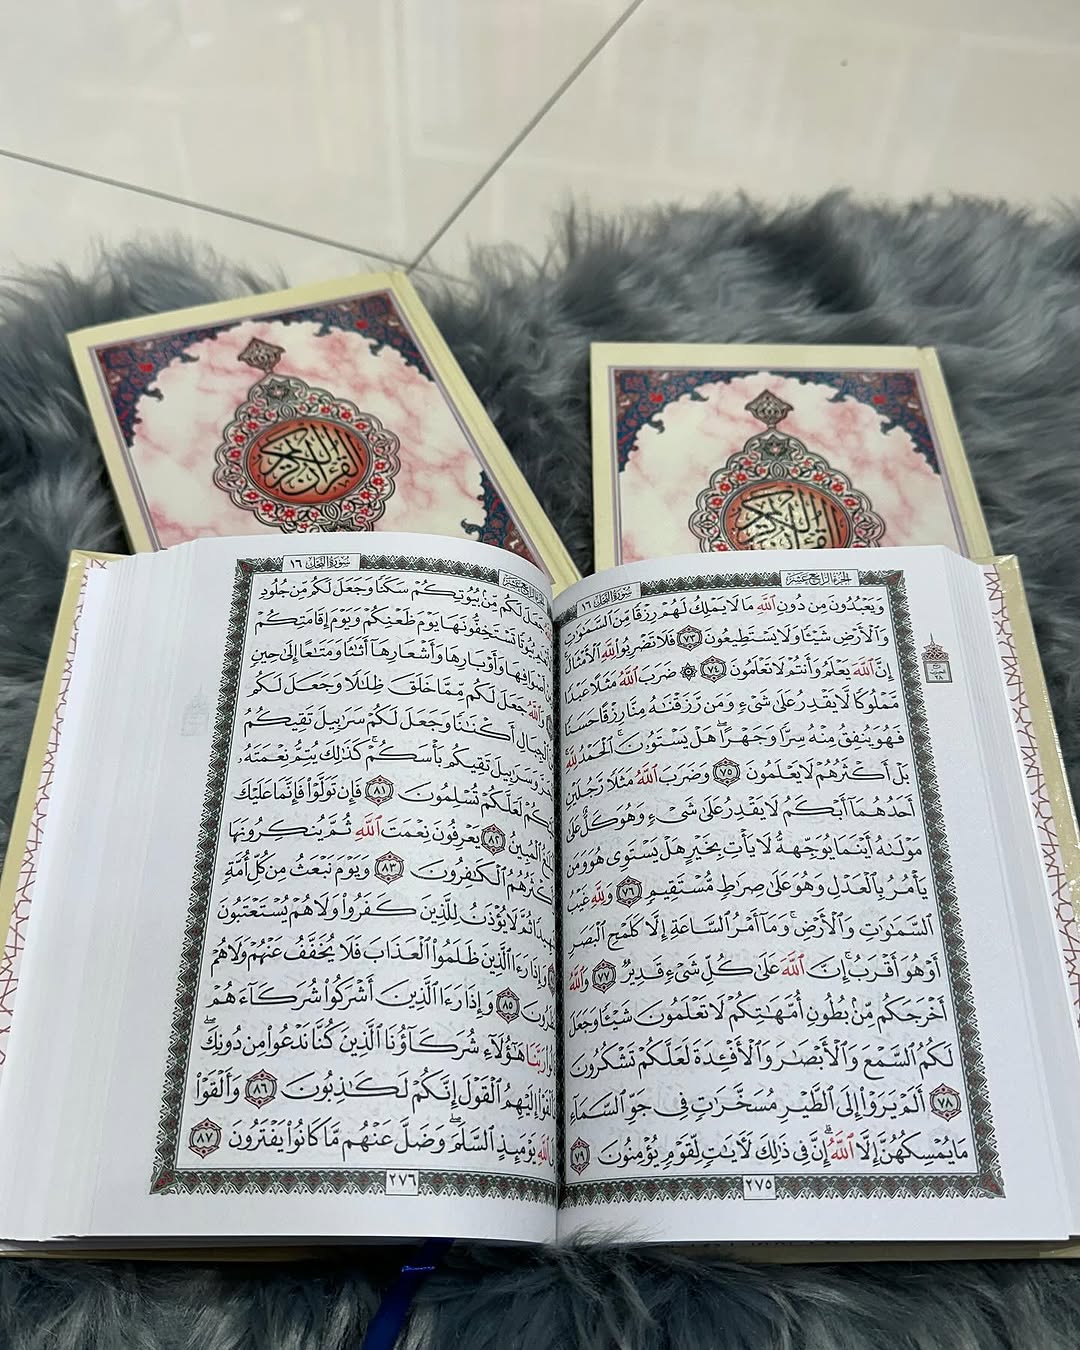 القرآن الكريم
القرآن الكريم
الجزء الرابع عشر
سورة النحل ١٦
وَيَعْبُدُونَ مِن دُونِ ٱللَّهِ مَا لَا يَمْلِكُ لَهُمْ رِزْقًا مِّنَ ٱلسَّمَٰوَٰتِ
وَٱلْأَرْضِ شَيْـًٔا وَلَا يَسْتَطِيعُونَ ٧٣ فَلَا تَضْرِبُوا۟ لِلَّهِ ٱلْأَمْثَالَ
إِنَّ ٱللَّهَ يَعْلَمُ وَأَنتُمْ لَا تَعْلَمُونَ ٧٤ ۞ ضَرَبَ ٱللَّهُ مَثَلًا عَبْدًا
مَّمْلُوكًا لَّا يَقْدِرُ عَلَىٰ شَىْءٍ وَمَن رَّزَقْنَٰهُ مِنَّا رِزْقًا حَسَنًا
فَهُوَ يُنفِقُ مِنْهُ سِرًّا وَجَهْرًا ۖ هَلْ يَسْتَوُۥنَ ۚ ٱلْحَمْدُ لِلَّهِ
بَلْ أَكْثَرُهُمْ لَا يَعْلَمُونَ ٧٥ وَضَرَبَ ٱللَّهُ مَثَلًا رَّجُلَيْنِ
أَحَدُهُمَآ أَبْكَمُ لَا يَقْدِرُ عَلَىٰ شَىْءٍ وَهُوَ كَلٌّ عَلَىٰ
مَوْلَىٰهُ أَيْنَمَا يُوَجِّههُّ لَا يَأْتِ بِخَيْرٍ هَلْ يَسْتَوِى هُوَ وَمَن
يَأْمُرُ بِٱلْعَدْلِ وَهُوَ عَلَىٰ صِرَٰطٍ مُّسْتَقِيمٍ ٧٦ وَلِلَّهِ غَيْبُ
ٱلسَّمَٰوَٰتِ وَٱلْأَرْضِ ۚ وَمَآ أَمْرُ ٱلسَّاعَةِ إِلَّا كَلَمْحِ ٱلْبَصَرِ
أَوْ هُوَ أَقْرَبُ ۚ إِنَّ ٱللَّهَ عَلَىٰ كُلِّ شَىْءٍ قَدِيرٌ ٧٧ وَٱللَّهُ
أَخْرَجَكُم مِّنۢ بُطُونِ أُمَّهَٰتِكُمْ لَا تَعْلَمُونَ شَيْـًٔا وَجَعَلَ
لَكُمُ ٱلسَّمْعَ وَٱلْأَبْصَٰرَ وَٱلْأَفْـِٔدَةَ لَعَلَّكُمْ تَشْكُرُونَ
٧٨ أَلَمْ يَرَوْا۟ إِلَى ٱلطَّيْرِ مُسَخَّرَٰتٍ فِى جَوِّ ٱلسَّمَآءِ
مَا يُمْسِكُهُنَّ إِلَّا ٱللَّهُ ۗ إِنَّ فِى ذَٰلِكَ لَءَايَٰتٍ لِّقَوْمٍ يُؤْمِنُونَ ٧٩
٢٧٥
الجزء الرابع عشر
سورة النحل ١٦
جَعَلَ لَكُم مِّنۢ بُيُوتِكُمْ سَكَنًا وَجَعَلَ لَكُم مِّن جُلُودِ
بُيُوتًا تَسْتَخِفُّونَهَا يَوْمَ ظَعْنِكُمْ وَيَوْمَ إِقَامَتِكُمْ
أَصْوَافِهَا وَأَوْبَارِهَا وَأَشْعَارِهَآ أَثَٰثًا وَمَتَٰعًا إِلَىٰ حِينٍ
وَٱللَّهُ جَعَلَ لَكُم مِّمَّا خَلَقَ ظِلَٰلًا وَجَعَلَ لَكُم
ٱلْجِبَالِ أَكْنَٰنًا وَجَعَلَ لَكُمْ سَرَٰبِيلَ تَقِيكُمُ
وَسَرَٰبِيلَ تَقِيكُم بَأْسَكُمْ ۚ كَذَٰلِكَ يُتِمُّ نِعْمَتَهُۥ
لَعَلَّكُمْ تُسْلِمُونَ ٨١ فَإِن تَوَلَّوْا۟ فَإِنَّمَا عَلَيْكَ
ٱلْمُبِينُ ٨٢ يَعْرِفُونَ نِعْمَتَ ٱللَّهِ ثُمَّ يُنكِرُونَهَا
ٱلْكَٰفِرُونَ ٨٣ وَيَوْمَ نَبْعَثُ مِن كُلِّ أُمَّةٍ
ثُمَّ لَا يُؤْذَنُ لِلَّذِينَ كَفَرُوا۟ وَلَا هُمْ يُسْتَعْتَبُونَ
وَإِذَا رَءَا ٱلَّذِينَ ظَلَمُوا۟ ٱلْعَذَابَ فَلَا يُخَفَّفُ عَنْهُمْ وَلَا هُمْ
٨٥ وَإِذَا رَءَا ٱلَّذِينَ أَشْرَكُوا۟ شُرَكَآءَهُمْ
رَبَّنَا هَٰٓؤُلَآءِ شُرَكَآؤُنَا ٱلَّذِينَ كُنَّا نَدْعُوا۟ مِن دُونِكَ ۖ
إِلَيْهِمُ ٱلْقَوْلَ إِنَّكُمْ لَكَٰذِبُونَ ٨٦ وَأَلْقَوْا۟
ٱللَّهِ يَوْمَئِذٍ ٱلسَّلَمَ ۖ وَضَلَّ عَنْهُم مَّا كَانُوا۟ يَفْتَرُونَ ٨٧
٢٧٦